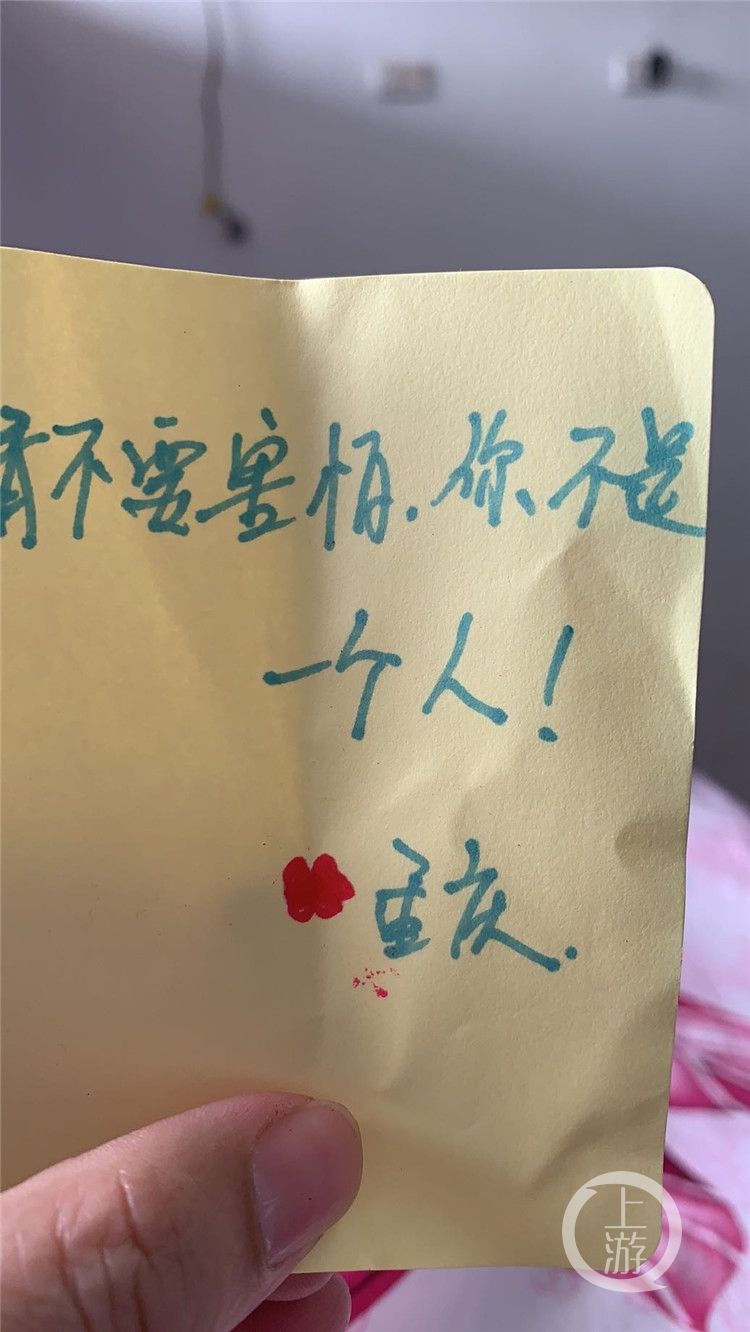 不要害怕.你不是
一个人!
重庆.
上游